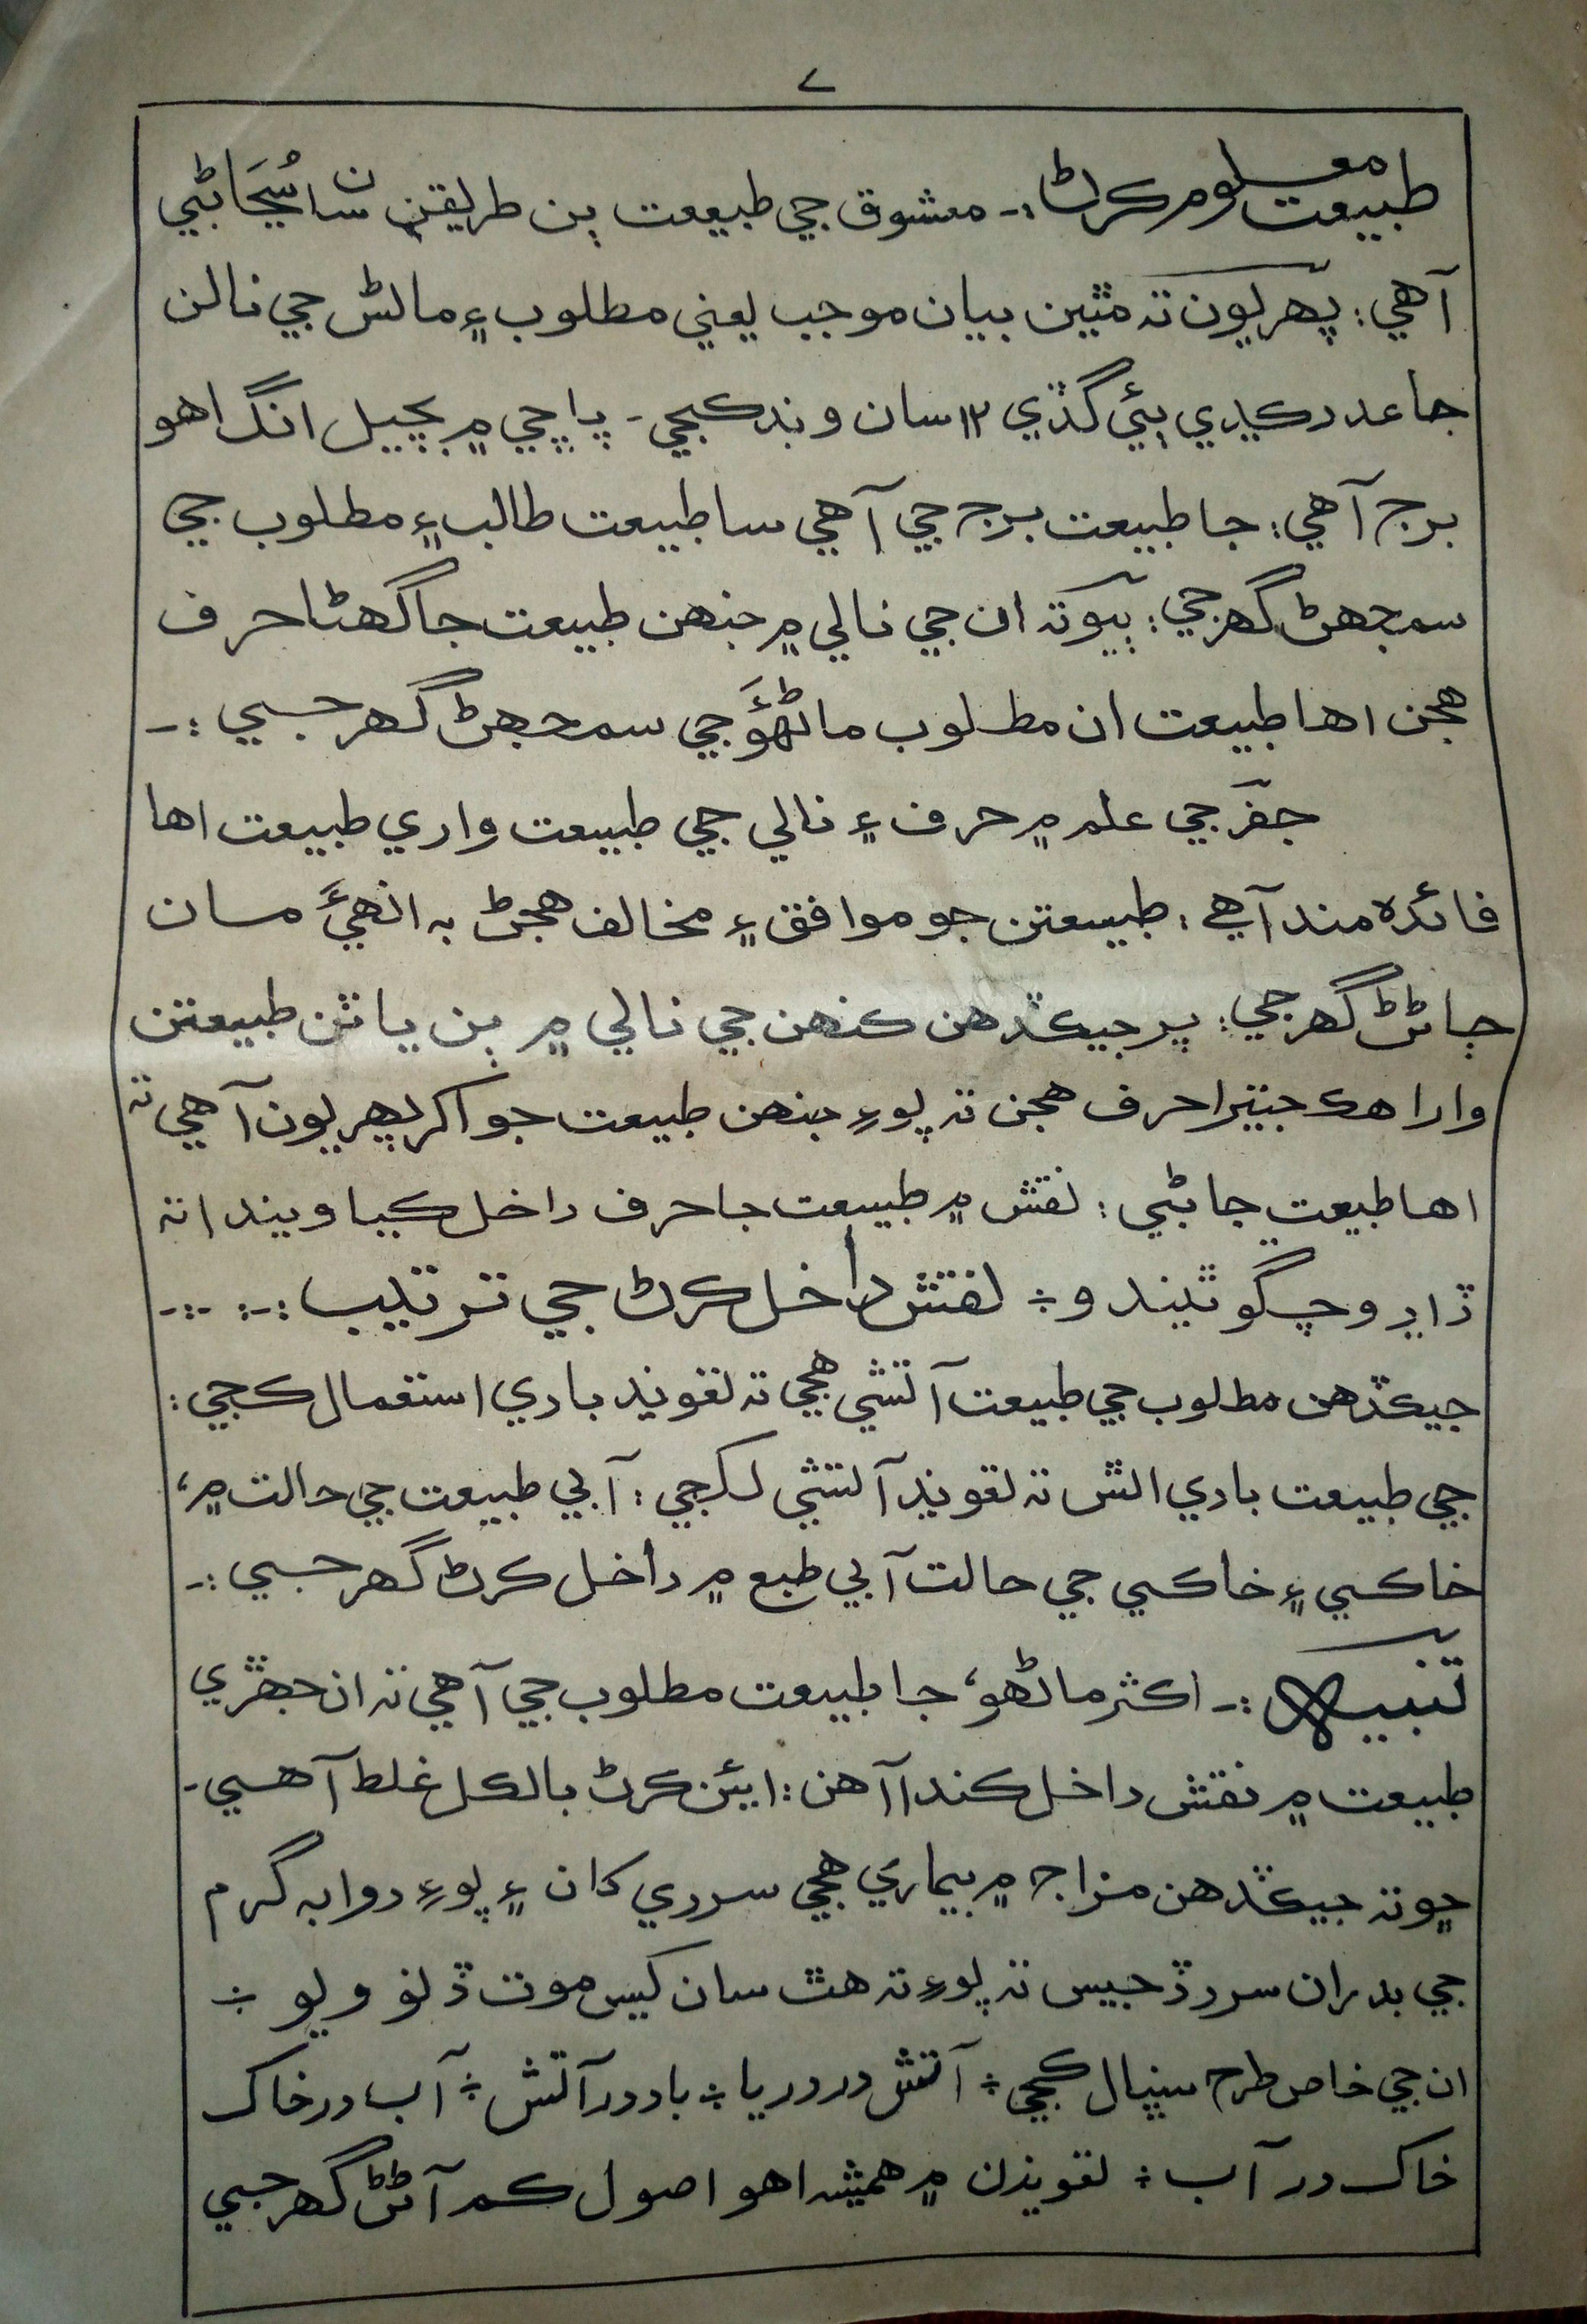 ۷
طبيعت معلوم ڪرڻ:- معشوق جي طبيعت ٻن طريقن سان سُڃَاڻبي
آهي: پهريون ته مٿين بيان موجب يعني مطلوب ۽ مائٽس جي نالن
جا عدد ڪڍي ٻئي گڏي ١٢ سان ونڊ ڪجي- پاڇي ۾ بچيل انگ اهو
برج آهي: جا طبيعت برج جي آهي سا طبيعت طالب ۽ مطلوب جي
سمجهڻ گهرجي: ٻيو ته ان جي نالي ۾ جنهن طبيعت جا گهڻا حرف
هجن اها طبيعت ان مطلوب ماڻهوءَ جي سمجهڻ گهرجي :-
جفر جي علم ۾ حرف ۽ نالي جي طبيعت واري طبيعت اها
فائده مند آهي: طبيعتن جو موافق ۽ مخالف هجڻ به انهيءَ مان
ڄاڻڻ گهرجي: پر جيڪڏهن ڪنهن جي نالي ۾ ٻن يا ٽن طبيعتن
وارا هڪ جيترا حرف هجن ته پوءِ جنهن طبيعت جو اکر پهريون آهي ته
اها طبيعت ڄاڻبي: نقش ۾ طبيعت جا حرف داخل ڪيا ويندا ته
ڏاڍو چڱو ٿيندو ÷ نقش داخل ڪرڻ جي ترتيب :-: -:-
جيڪڏهن مطلوب جي طبيعت آتشي هجي ته تعويذ بادي استعمال ڪجي:
جي طبيعت بادي اٿس ته تعويذ آتشي لکجي: آبي طبيعت جي حالت ۾،
خاڪي ۽ خاڪي جي حالت آبي طبع ۾ داخل ڪرڻ گهرجي :-
تنبيهه :- اڪثر ماڻهو، جا طبيعت مطلوب جي آهي ته ان جهڙي
طبيعت ۾ نقش داخل ڪندا آهن: ايئن ڪرڻ بالڪل غلط آهي-
ڇو ته جيڪڏهن مزاج ۾ بيماري هجي سردي کان ۽ پوءِ دوا به گرم
جي بدران سرد ڏجيس ته پوءِ ته هٿ سان کيس موت ڏنو ويو ÷
ان جي خاص طرح سنڀال ڪجي ÷ آتش در دريا ÷ باد در آتش ÷ آب در خاک
خاک در آب ÷ تعويذن ۾ هميشه اهو اصول ڪم آڻڻ گهرجي